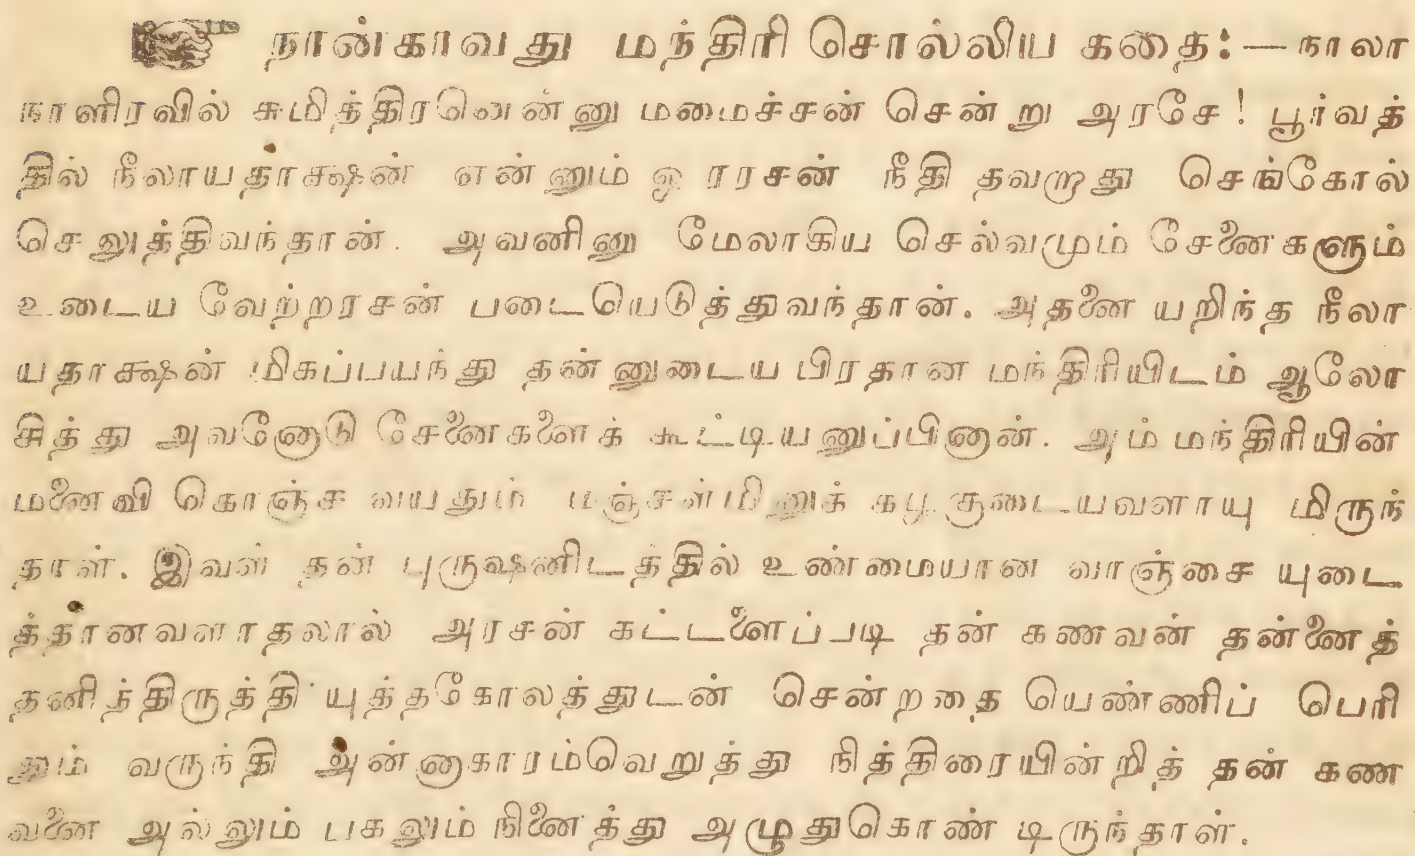 ☞ நான்காவது மந்திரி சொல்லிய கதை:— நாலா
நாளிரவில் சுமித்திரனென்னு மமைச்சன் சென்று அரசே! பூர்வத்
தில் நீலாயதாக்ஷன் என்னும் ஓரரசன் நீதி தவறாது செங்கோல்
செலுத்திவந்தான். அவனினு மேலாகிய செல்வமும் சேனைகளும்
உடைய வேற்றரசன் படையெடுத்துவந்தான். அதனை யறிந்த நீலா
யதாக்ஷன் மிகப்பயந்து தன்னுடைய பிரதான மந்திரியிடம் ஆலோ
சித்து அவனோடு சேனைகளைக் கூட்டியனுப்பினான். அம் மந்திரியின்
மனைவி கொஞ்ச வயதும் மஞ்சள்மினுக் கழகுடையவளாயு மிருந்
தாள். இவள் தன் புருஷனிடத்தில் உண்மையான வாஞ்சை யுடை
த்தானவளாதலால் அரசன் கட்டளைப்படி தன் கணவன் தன்னைத்
தனித்திருத்தி யுத்தகோலத்துடன் சென்றதை யெண்ணிப் பெரி
தும் வருந்தி அன்னாகாரம்வெறுத்து நித்திரையின்றித் தன் கண
வனை அல்லும் பகலும் நினைத்து அழுதுகொண் டிருந்தாள்.